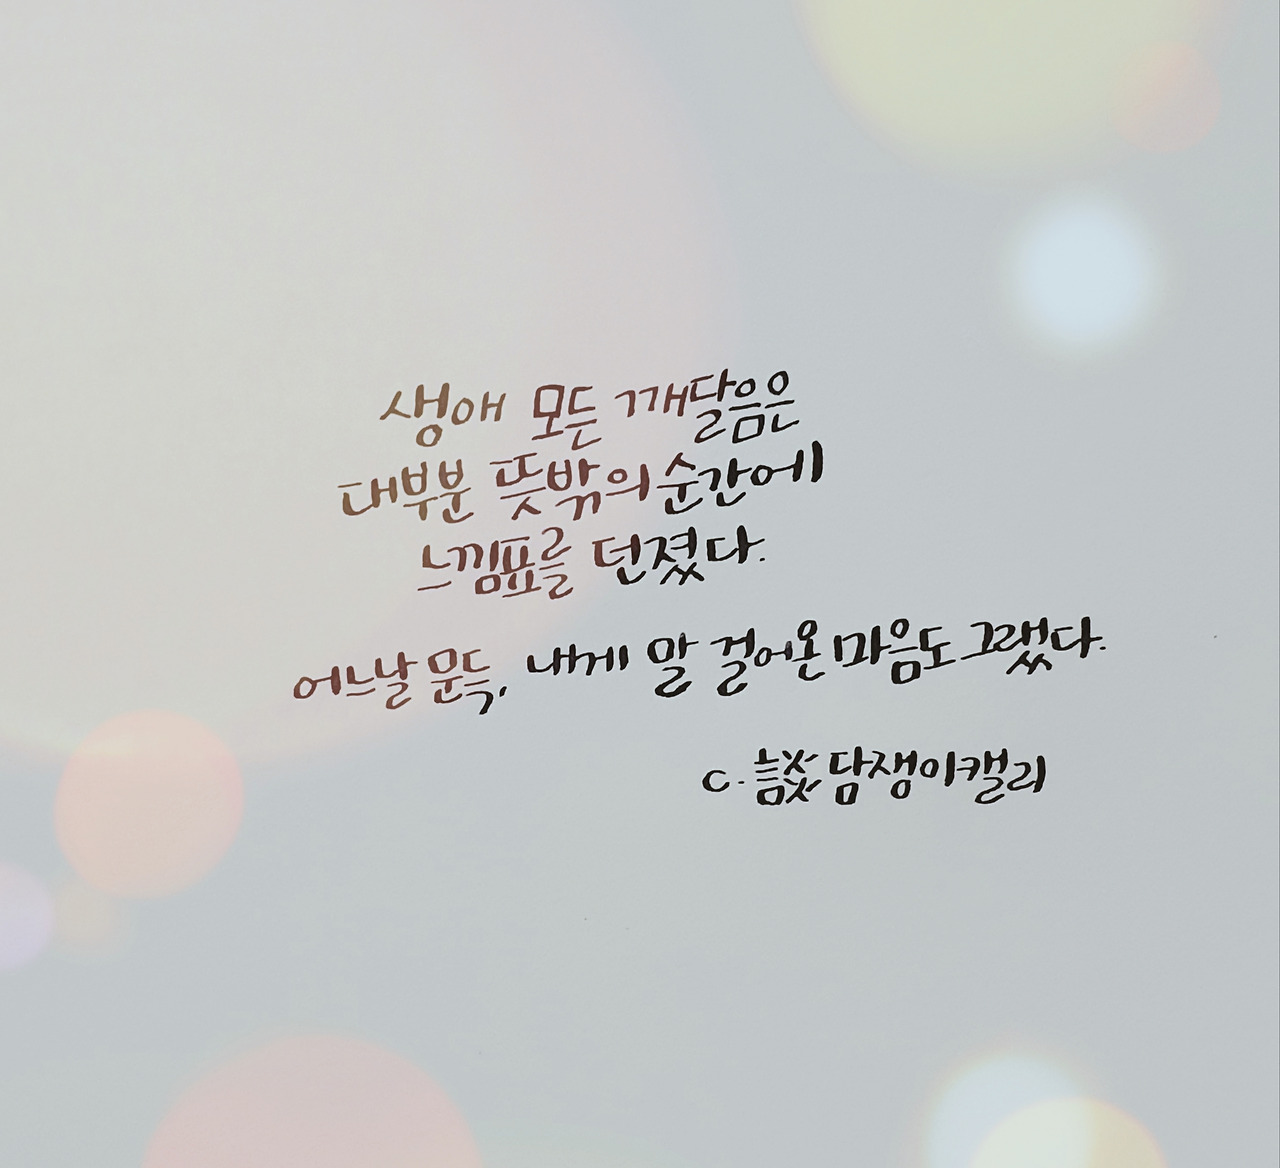 생애 모든 깨달음은
대부분 뜻밖의 순간에
느낌표를 던졌다.
어느날 문득, 내게 말 걸어온 마음도 그랬다.
c. 談 담쟁이캘리